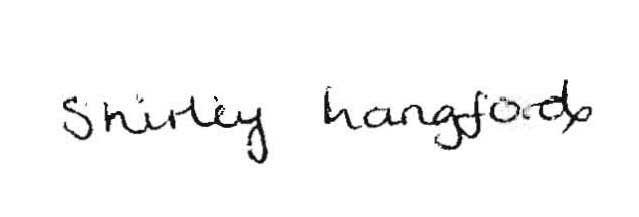 Shirley hangford